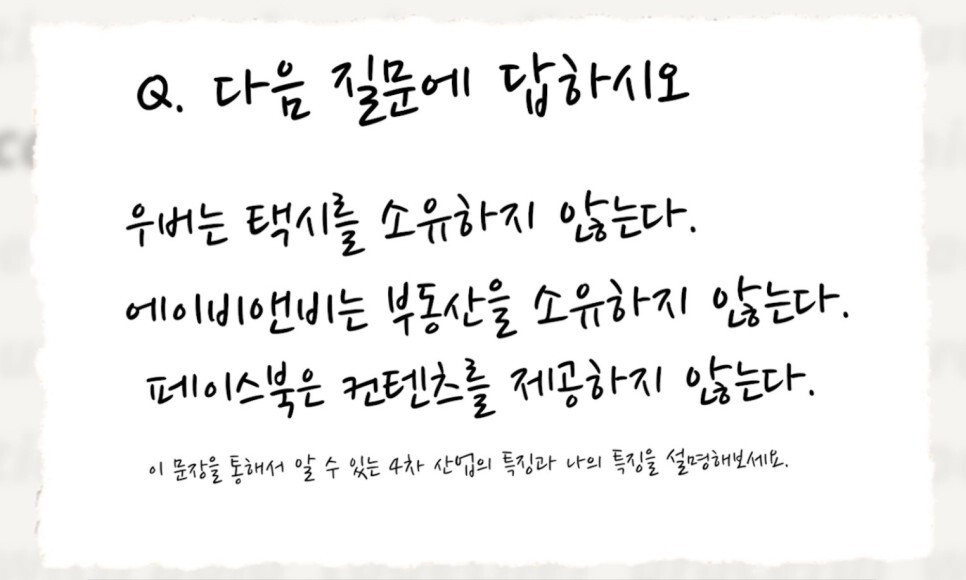 Q. 다음 질문에 답하시오
우버는 택시를 소유하지 않는다.
에이비앤비는 부동산을 소유하지 않는다.
페이스북은 컨텐츠를 제공하지 않는다.
이 문장을 통해서 알 수 있는 4차 산업의 특징과 나의 특징을 설명해보세요.